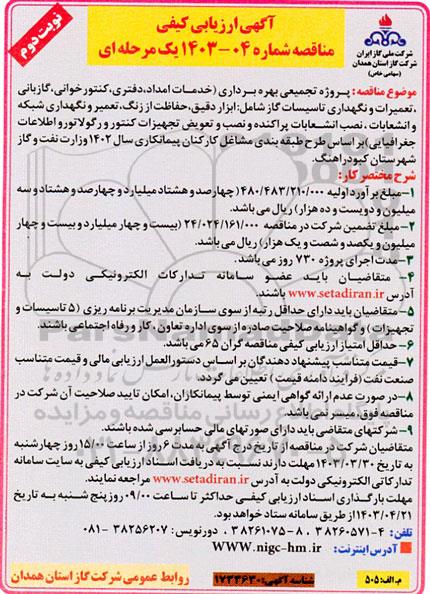 نوبت دوم
آگهی ارزیابی کیفی
مناقصه شماره ۰۴-۱۴۰۳ یک مرحله ای
شرکت ملی گاز ایران
شرکت گاز استان همدان
(سهامی خاص)
موضوع مناقصه: پروژه تجمیعی بهره برداری (خدمات امداد، دفتری، کنتور خوانی، گازبانی
، تعمیرات و نگهداری تاسیسات گاز شامل: ابزار دقیق، حفاظت از زنگ، تعمیر و نگهداری شبکه
و انشعابات ، نصب انشعابات پراکنده و نصب و تعویض تجهیزات کنتور و رگولاتور و اطلاعات
جغرافیایی) بر اساس طرح طبقه بندی مشاغل کارکنان پیمانکاری سال ۱۴۰۲ وزارت نفت و گاز
شهرستان کبودرآهنگ.
شرح مختصر کار:
۱- مبلغ برآورد اولیه ۴۸۰/۴۸۳/۲۱۰/۰۰۰ (چهارصد و هشتاد میلیارد و چهارصد و هشتاد و سه
میلیون و دویست و ده هزار) ریال می باشد.
۲- مبلغ تضمین شرکت در مناقصه ۲۴/۰۲۴/۱۶۱/۰۰۰ (بیست و چهار میلیارد و بیست و چهار
میلیون و یکصد و شصت و یک هزار) ریال می باشد.
۳- مدت اجرای پروژه ۷۳۰ روز می باشد.
۴- متقاضیان باید عضو سامانه تدارکات الکترونیکی دولت به
آدرس www.setadiran.ir باشند.
۵- متقاضیان باید دارای حداقل رتبه از سوی سازمان مدیریت برنامه ریزی (۵ تاسیسات و
تجهیزات) و گواهینامه صلاحیت صادره از سوی اداره تعاون ، کار و رفاه اجتماعی باشند.
۶- حداقل امتیاز ارزیابی کیفی مناقصه گران ۶۵ می باشد.
۷- قیمت متناسب پیشنهاد دهندگان بر اساس دستورالعمل ارزیابی مالی و قیمت متناسب
صنعت نفت (فرایند دامنه قیمت) تعیین می گردد.
۸- در صورت عدم ارائه گواهی ایمنی توسط پیمانکاران، امکان تایید صلاحیت آن شرکت در
مناقصه فوق میسر نمی باشد.
۹- شرکتهای متقاضی باید دارای صورتهای مالی حسابرسی شده باشند.
متقاضیان شرکت در مناقصه از تاریخ درج آگهی به مدت ۶ روز از ساعت ۱۵/۰۰ روز چهارشنبه
به تاریخ ۱۴۰۳/۰۳/۳۰ مهلت دارند نسبت به دریافت اسناد ارزیابی کیفی به سایت سامانه
تدارکاتی الکترونیکی دولت به آدرس www.setadiran.ir مراجعه نمایند.
مهلت بارگذاری اسناد ارزیابی کیفی حداکثر تا ساعت ۰۹/۰۰ روز پنج شنبه به تاریخ
۱۴۰۳/۰۴/۲۱ از طریق سامانه ستاد خواهد بود.
تلفن: ۴-۳۸۲۶۰۵۷۱ ، ۸-۳۸۲۶۱۰۷۵ . دورنویس: ۳۸۲۵۶۲۰۷ -۰۸۱
آدرس اینترنت: WWW.nigc-hm.ir
م.الف: ۵۰۵
شناسه آگهی: ۱۷۳۳۶۳۰
روابط عمومی شرکت گاز استان همدان